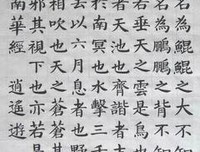 名為鯤鯤之大不知
名為鵬鵬之背不知
若垂天之雲是鳥也
者天池也齊諧者志
於南冥也水擊三千
去以六月息者也
相吹也天之蒼蒼其
邪其視下也亦若是
南華經 逍遙遊